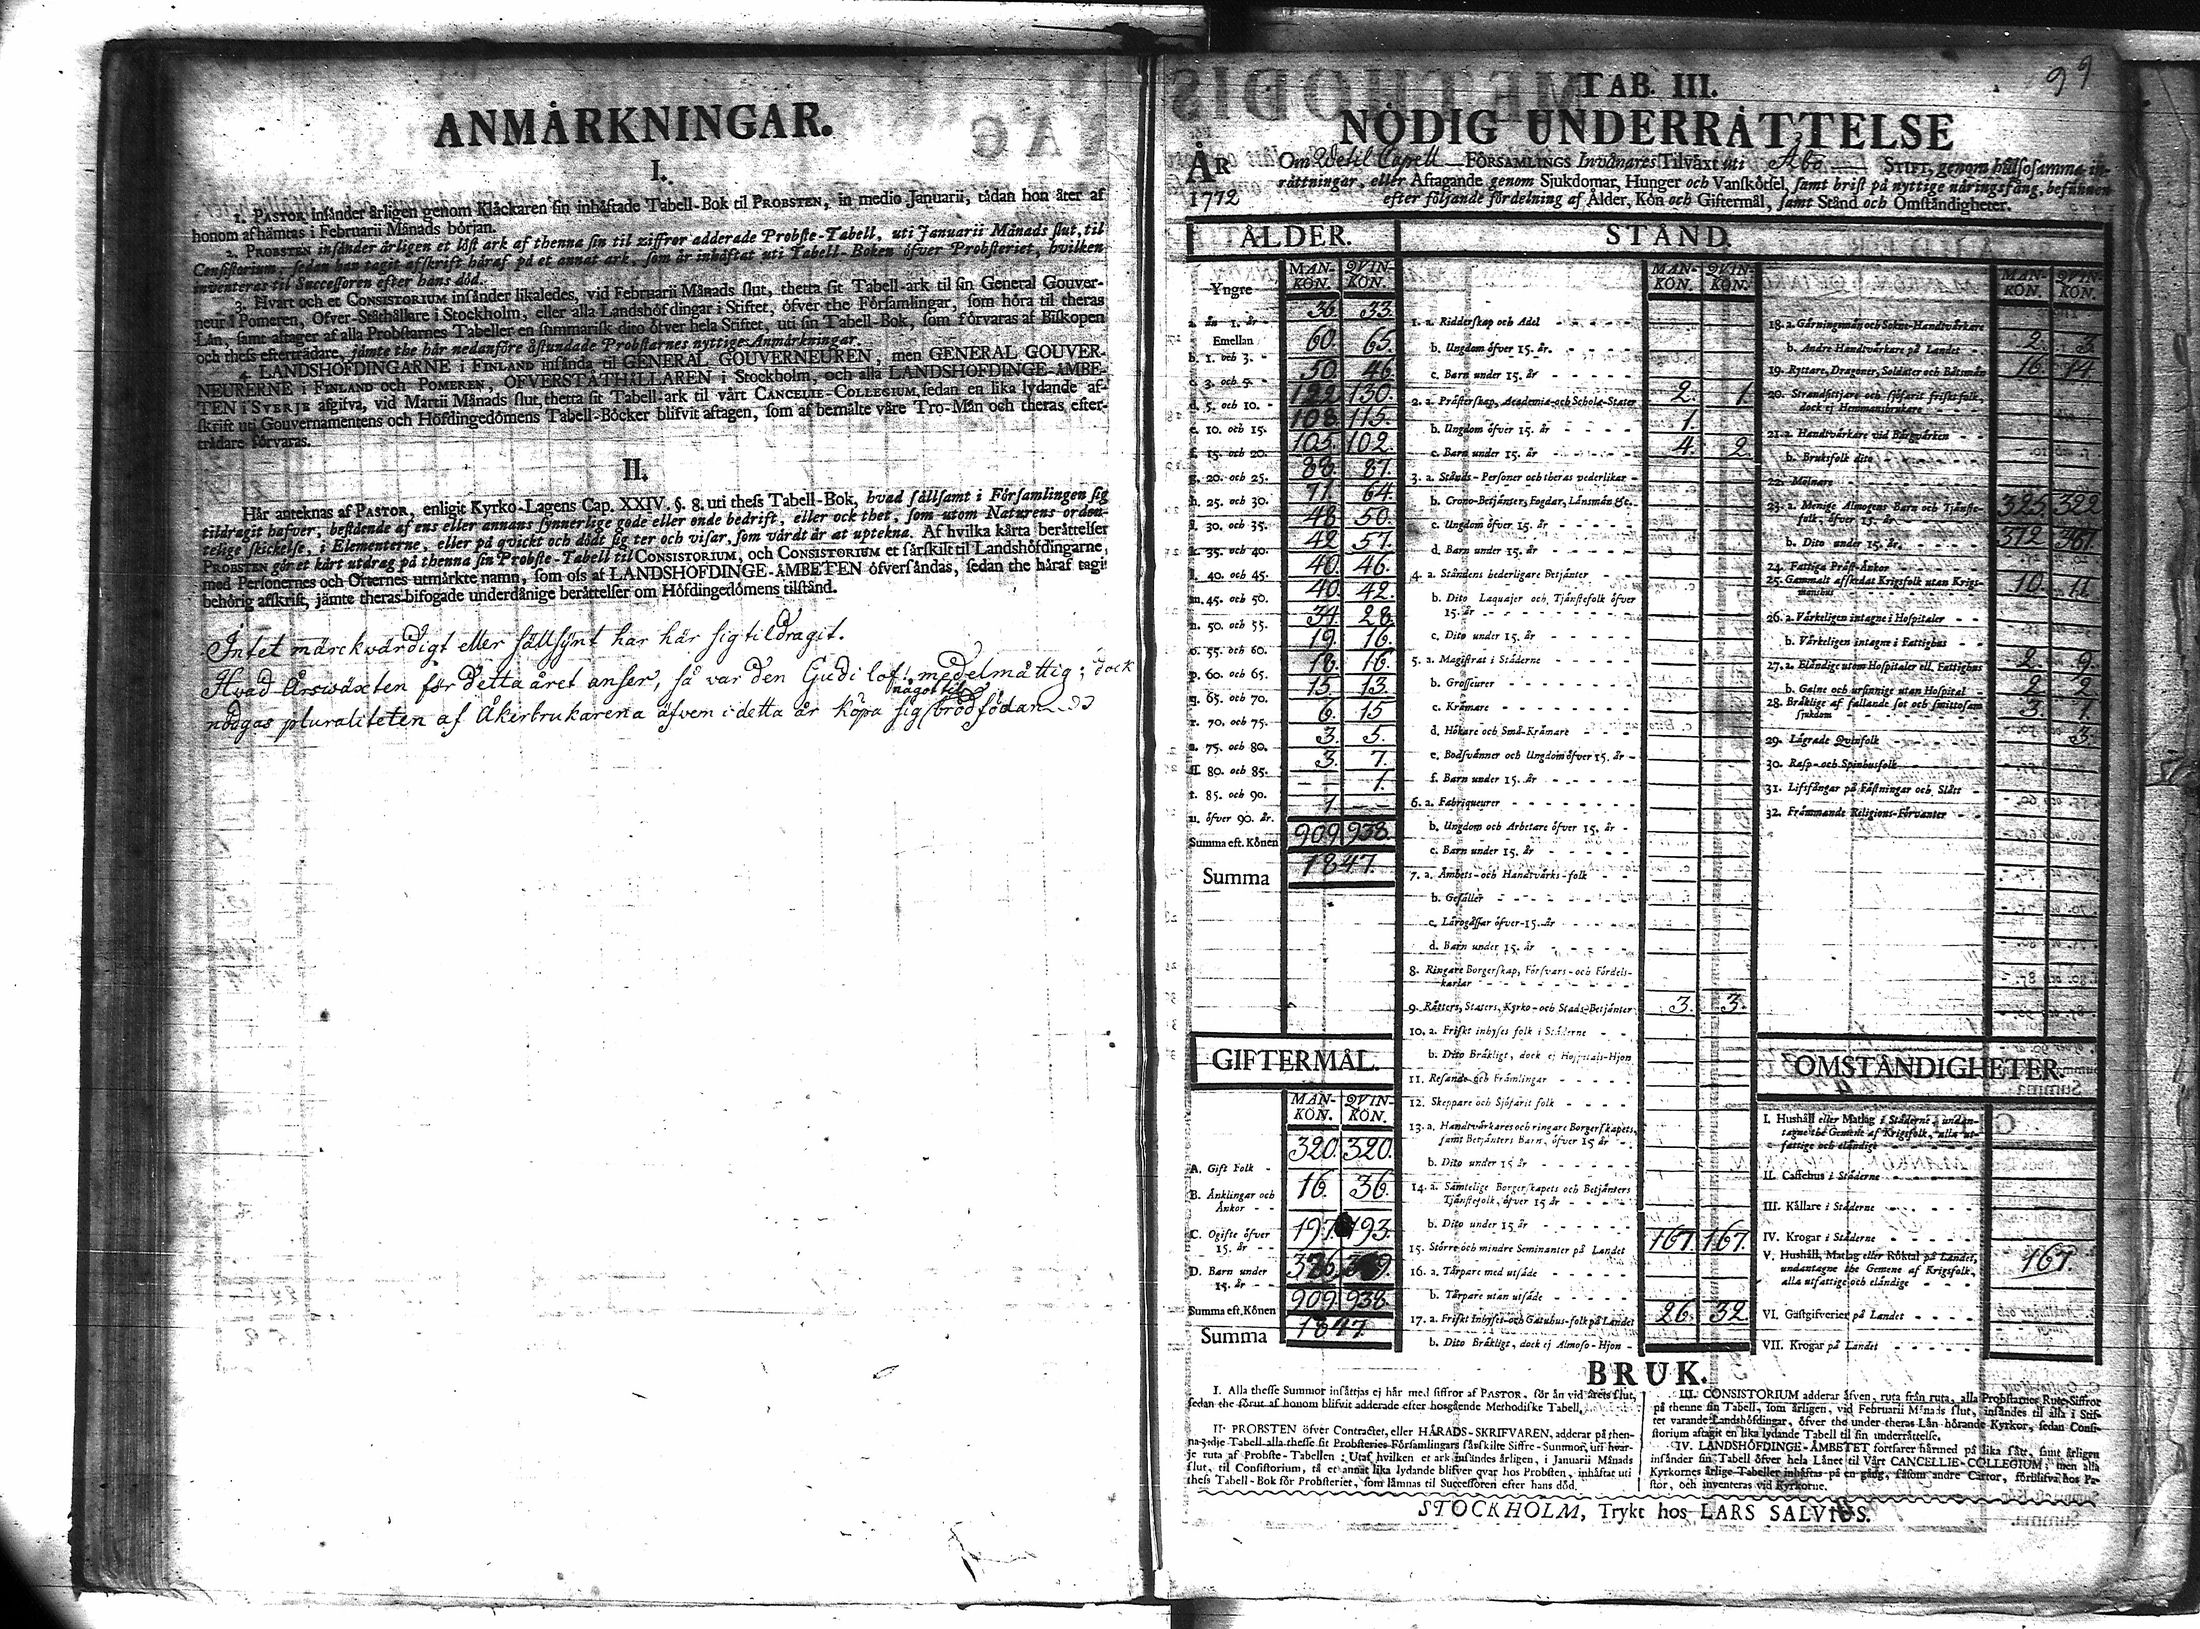 ANMÅRKNINGAR.
I.
1. PASTOR insånder årligen genom Klåckaren sin inhåftade Tabell-Bok til PROBSTEN, in medio Januarii, tådan hon åter af
honom afhåmtas i Februarii Månads början.
2. PROBSTEN insånder årligen et löst ark af thenna sin til ziffror adderade Probste-Tabell, uti Januarii Månads slut, til
Consistorium, sedan han tagit afskrift håraf på et annat ark, som år inhåftat uti Tabell-Boken öfver Probsteriet, hvilken
inventeras til Successoren efter hans död.
3. Hvart och et CONSISTORIUM insånder likaledes, vid Februarii Månads slut, thetta sit Tabell-ark til sin General Gouver-
neur i Pomeren, Öfver-Ståthållare i Stockholm, eller alla Landshöfdingar i Stiftet, öfver the Församlingar, som höra til theras
Lån, samt aftager af alla Probstarnes Tabeller en summarisk dito öfver hela Stiftet, uti sin Tabell-Bok, som förvaras af Biskopen
och thess eftertrådare, jåmte the hår nedanföre åstundade Probstarnes nyttige Anmårkningar.
4. LANDSHÖFDINGARNE i FINLAND insånda til GENERAL GOUVERNEUREN, men GENERAL GOUVER-
NEURERNE i FINLAND och POMEREN, ÖFVERSTÅTHÅLLAREN i Stockholm, och alla LANDSHÖFDINGE-ÅMBE-
TEN i SVERJE afgifva, vid Martii Månads slut, thetta sit Tabell-ark til vårt CANCELIE-COLLEGIUM, sedan en lika lydande af-
skrift uti Gouvernamentens och Höfdingedömens Tabell-Böcker blifvit aftagen, som af bemålte våre Tro-Mån och theras efter-
trådare förvaras.
II.
Hår anteknas af PASTOR, enligit Kyrko-Lagens Cap. XXIV. §. 8. uti thess Tabell-Bok, hvad sållsamt i Församlingen sig
tildragit hafver, bestående af ens eller annans synnerlige gode eller onde bedrift, eller ock thet, som utom Naturens orden-
telige skickelse, i Elementerne, eller på qvickt och dödt sig ter och visar, som vårdt år at uptekna. Af hvilka kårta beråttelser
PROBSTEN gör et kårt utdrag på thenna sin Probste-Tabell til CONSISTORIUM, och CONSISTORIUM et sårskilt til Landshöfdingarne,
med Personernes och Orternes utmårkte namn, som oss af LANDSHÖFDINGE-ÅMBETEN öfversåndas, sedan the håraf tagit
behörig afskrift, jåmte theras bifogade underdånige beråttelser om Höfdingedömens tilstånd.
Intet märckvärdigt eller sällsynt har här sig tildragit.
Hvad Årswäxten för detta året anser, så var den Gudi lof! medelmåttig; dock
något til
nödgas pluraliteten af Åkerbrukarena äfven i detta år köpa sig brödfödan
99
TAB. III.
NÖDIG UNDERRÅTTELSE
ÅR Om Wetil Capell FÖRSAMLINGS Invånares Tilväxt uti Åbo STIFT, genom hålsosamma in-
1772 råttningar, eller Aftagande genom Sjukdomar, Hunger och Vanskötsel, samt brist på nyttige näringsfång, befunnen
efter följande fördelning af Ålder, Kön och Giftermål, samt Stånd och Omståndigheter.
ÅLDER.
MAN-KÖN. QVIN-KÖN.
Yngre
a. ån 1. år 36. 33.
Emellan
b. 1. och 3. 60. 65.
c. 3. och 5. 50. 46.
d. 5. och 10. 122 130.
e. 10. och 15. 108 115.
f. 15. och 20. 105. 102.
g. 20. och 25. 88. 87.
h. 25. och 30. 77. 64.
i. 30. och 35. 48. 50.
k. 35. och 40. 42. 57.
l. 40. och 45. 40. 46.
m. 45. och 50. 40. 42.
n. 50. och 55. 34. 28.
o. 55. och 60. 19. 16.
p. 60. och 65. 18. 16.
q. 65. och 70. 15. 13.
r. 70. och 75. 6. 15
s. 75. och 80. 3. 5.
ſſ. 80. och 85. 3. 7.
t. 85. och 90. — 1.
u. öfver 90. år. 1 —
Summa eft. Könen 909. 938.
Summa 1847.
GIFTERMÅL.
MAN-KÖN. QVIN-KÖN.
A. Gift Folk 320. 320.
B. Änklingar och Änkor 16. 36.
C. Ogifte öfver 15. år 197. 193.
D. Barn under 15. år 376.
Summa eft. Könen 909. 938.
Summa 1847.
STÅND.
MAN-KÖN. QVIN-KÖN.
1. a. Ridderskap och Adel
b. Ungdom öfver 15. år.
c. Barn under 15. år
2. a. Pråsterskap, Academiæ och Scholæ-Stater 2. 1
b. Ungdom öfver 15. år 1.
c. Barn under 15. år 4. 2.
3. a. Stånds-Personer och theras vederlikar
b. Crono-Betjånter, Fogdar, Lånsmån &c.
c. Ungdom öfver 15. år
d. Barn under 15. år
4. a. Ståndens hederligare Betjånter
b. Dito Laquajer och Tjånstefolk öfver
15. år
c. Dito under 15. år
5. a. Magistrat i Ståderne
b. Grosseurer
c. Kråmare
d. Hökare och Små-Kråmare
e. Bodsvånner och Ungdom öfver 15. år
f. Barn under 15. år
6. a. Fabriqueurer
b. Ungdom och Arbetare öfver 15. år
c. Barn under 15. år
7. a. Åmbets- och Handtvårks-folk
b. Gesåller
c. Lårogåssar öfver 15. år
d. Barn under 15. år
8. Ringare Borgerskap, Försvars- och Fördels-
karlar
9. Råtters, Staters, Kyrko- och Stads-Betjånter 3. 3.
10. a. Friskt inhyses folk i Ståderne
b. Dito Bråkligt, dock ej Hospitals-Hjon
11. Resande och Fråmlingar
12. Skeppare och Sjöfarit folk
13. a. Handtvårkares och ringare Borgerskapets,
samt Betjånters Barn, öfver 15 år
b. Dito under 15 år
14. a. Samtelige Borgerskapets och Betjånters
Tjånstefolk, öfver 15 år
b. Dito under 15 år
15. Större och mindre Seminanter på Landet 167. 167.
16. a. Tårpare med utsåde
b. Tårpare utan utsåde
17. a. Friskt Inhyses- och Gatuhus-folk på Landet 26. 32.
b. Dito Bråkligt, dock ej Almoso-Hjon
MAN-KÖN. QVIN-KÖN.
18. a. Gårningsmån och Sokne-Handtvårkare
b. Andre Handtvårkare på Landet 2. 3.
19. Ryttare, Dragoner, Soldater och Båtsmån 16. 14.
20. Strandsittjare och sjöfarit friskt folk,
dock ej Hemmansbrukare
21. a. Handtvårkare vid Bårgvårken
b. Bruksfolk dito
22. Mölnare
23. a. Menige Almogens Barn och Tjånste-
folk, öfver 15. år 325. 322
b. Dito under 15. år. 372. 367.
24. Fattiga Pråst-Ånkor
25. Gammalt afskedat Krigsfolk utan Krigs-
manshus 10. 11.
26. a. Vårkeligen intagne i Hospitaler
b. Vårkeligen intagne i Fattighus
27. a. Elåndige utom Hospitaler ell. Fattighus 2. 9.
b. Galne och ursinnige utan Hospital 2. 2
28. Bråklige af fallande sot och smittosam
sjukdom 3. 1.
29. Lågrade Qvinfolk 3.
30. Rasp- och Spinhusfolk
31. Lifsfångar på Fåstningar och Slått
32. Fråmmande Religions-Förvanter
OMSTÅNDIGHETER.
I. Hushåll eller Matlag i Ståderne, undan-
tagne the Gemene af Krigsfolk, alla ut-
fattige och elåndige
II. Caffehus i Ståderne
III. Kållare i Ståderne
IV. Krogar i Ståderne
V. Hushåll, Matlag eller Röktal på Landet,
undantagne the Gemene af Krigsfolk,
alla utfattige och elåndige 167.
VI. Gåstgifverier på Landet
VII. Krogar på Landet
BRUK.
I. Alla thesse Summor insåttjas ej hår med siffror af PASTOR, för ån vid årets slut,
sedan the förut af honom blifvit adderade efter hosgående Methodiske Tabell.
II. PROBSTEN öfver Contractet, eller HÅRADS-SKRIFVAREN, adderar på then-
na 3:dje Tabell alla thesse sit Probsteries Församlingars sårskilte Siffre-Summor, uti hvar-
je ruta af Probste-Tabellen: Utaf hvilken et ark insåndes årligen, i Januarii Månads
slut, til Consistorium, tå et annat lika lydande blifver qvar hos Probsten, inhåftat uti
thess Tabell-Bok för Probsteriet, som låmnas til Successoren efter hans död.
III. CONSISTORIUM adderar åfven, ruta från ruta, alla Probstarnes Rute-Siffror
på thenne sin Tabell, som årligen, vid Februarii Månads slut, insåndes til alla i Stif-
tet varande Landshöfdingar, öfver the under theras Lån hörande Kyrkor, sedan Consi-
storium aftagit en lika lydande Tabell til sin underråttelse.
IV. LANDSHÖFDINGE-ÅMBETET fortfarer hårmed på lika sått, samt årligen
insånder sin Tabell öfver hela Lånet til Vårt CANCELLIE-COLLEGIUM; men alla
Kyrkornes årlige Tabeller inhåftas på en gång, såsom andre Cartor, förblifva hos Pa-
stor, och inventeras vid Kyrkorne.
STOCKHOLM, Tryckt hos LARS SALVIUS.